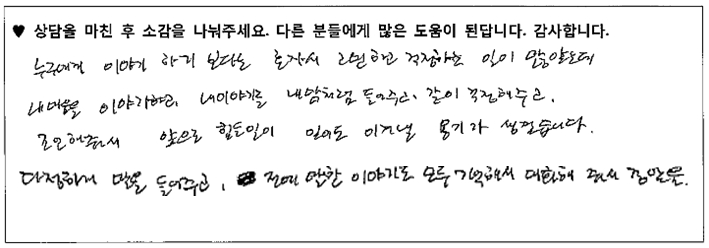 ♥ 상담을 마친 후 소감을 나눠주세요. 다른 분들에게 많은 도움이 된답니다. 감사합니다.
누구에게 이야기 하기 보다는 혼자서 고민하고 걱정하는 일이 많았는데
내마음을 이야기하고, 내이야기를 내맘처럼 들어주고, 같이 걱정해주고,
조언해주셔서 앞으로 힘든일이 있어도 이겨낼 용기가 생겼습니다.
다정하게 말을 들어주고, 전에 말한 이야기도 모두 기억해서 대화해 주셔서